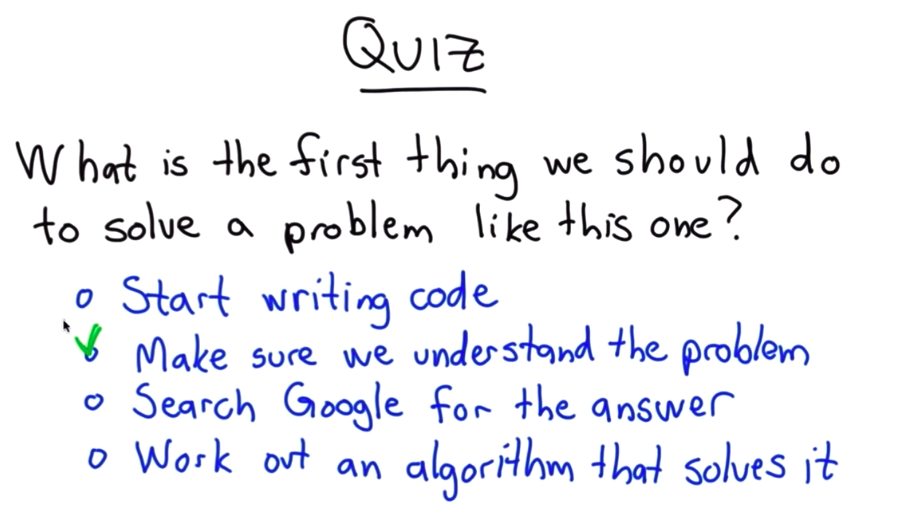 QUIZ
What is the first thing we should do
to solve a problem like this one?
Start writing code
Make sure we understand the problem
Search Google for the answer
Work out an algorithm that solves it